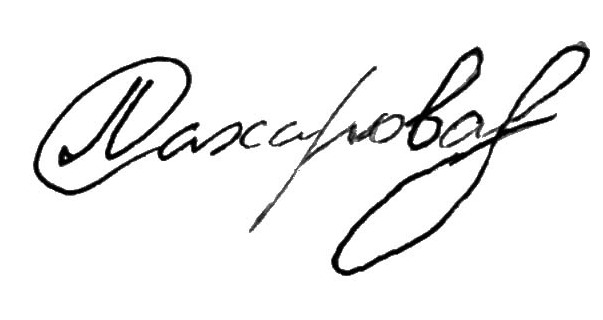 Сахарова